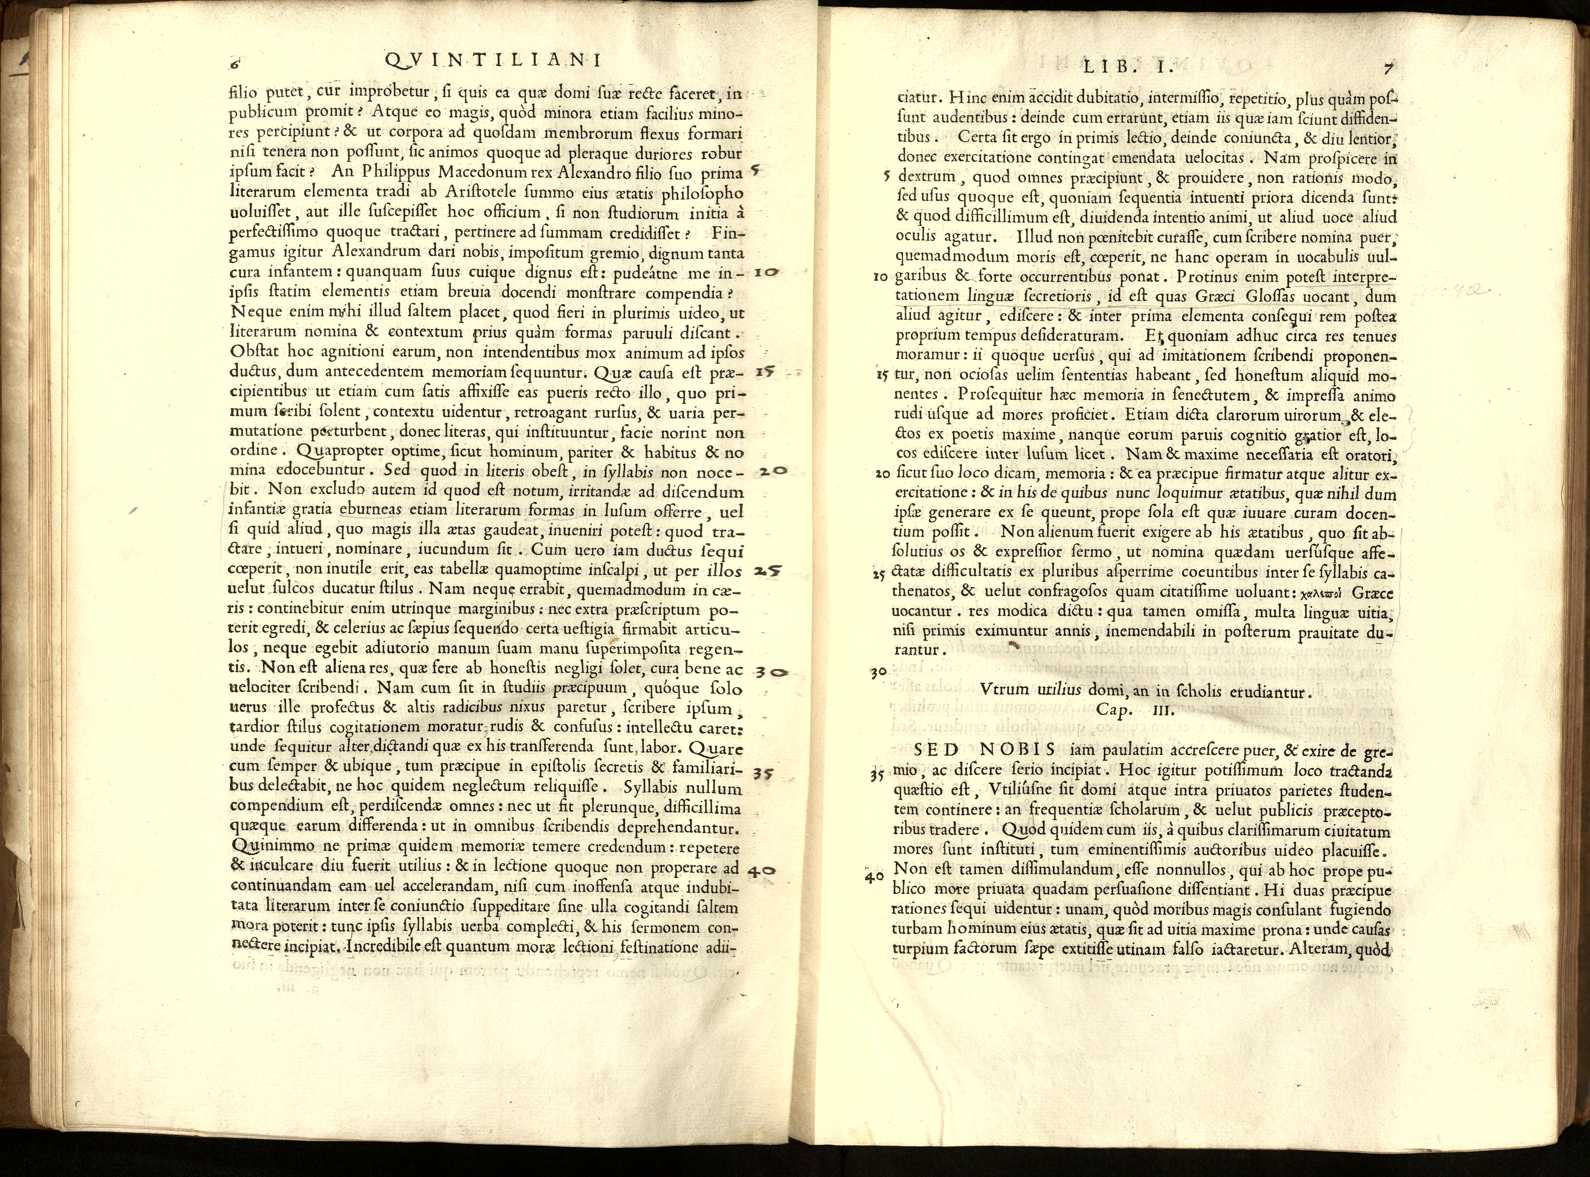 6 QVINTILIANI
filio putet, cur improbetur, ſi quis ea quæ domi ſuæ recte faceret, in
publicum promit? Atque eo magis, quòd minora etiam facilius mino-
res percipiunt? & ut corpora ad quoſdam membrorum flexus formari
niſi tenera non poſſunt, ſic animos quoque ad pleraque duriores robur
ipſum facit? An Philippus Macedonum rex Alexandro filio ſuo prima 5
literarum elementa tradi ab Ariſtotele ſummo eius ætatis philoſopho
uoluiſſet, aut ille ſuſcepiſſet hoc officium, ſi non ſtudiorum initia à
perfectiſſimo quoque tractari, pertinere ad ſummam credidiſſet? Fin-
gamus igitur Alexandrum dari nobis, impoſitum gremio, dignum tanta
cura infantem: quanquam ſuus cuique dignus eſt: pudeátne me in- 10
ipſis ſtatim elementis etiam breuia docendi monſtrare compendia?
Neque enim mihi illud ſaltem placet, quod fieri in plurimis uideo, ut
literarum nomina & contextum prius quàm formas paruuli diſcant.
Obſtat hoc agnitioni earum, non intendentibus mox animum ad ipſos
ductus, dum antecedentem memoriam ſequuntur. Quæ cauſa eſt præ- 15
cipientibus ut etiam cum ſatis affixiſſe eas pueris recto illo, quo pri-
mum ſcribi ſolent, contextu uidentur, retroagant rurſus, & uaria per-
mutatione perturbent, donec literas, qui inſtituuntur, facie norint non
ordine. Quapropter optime, ſicut hominum, pariter & habitus & no
mina edocebuntur. Sed quod in literis obeſt, in ſyllabis non noce- 20
bit. Non excludo autem id quod eſt notum, irritandæ ad diſcendum
infantiæ gratia eburneas etiam literarum formas in luſum offerre, uel
ſi quid aliud, quo magis illa ætas gaudeat, inueniri poteſt: quod tra-
ctare, intueri, nominare, iucundum ſit. Cum uero iam ductus ſequi
cœperit, non inutile erit, eas tabellæ quamoptime inſcalpi, ut per illos 25
uelut ſulcos ducatur ſtilus. Nam neque errabit, quemadmodum in cæ-
ris: continebitur enim utrinque marginibus: nec extra præſcriptum po-
terit egredi, & celerius ac ſæpius ſequendo certa ueſtigia firmabit articu-
los, neque egebit adiutorio manum ſuam manu ſuperimpoſita regen-
tis. Non eſt aliena res, quæ fere ab honeſtis negligi ſolet, cura bene ac 30
uelociter ſcribendi. Nam cum ſit in ſtudiis præcipuum, quóque ſolo
uerus ille profectus & altis radicibus nixus paretur, ſcribere ipſum,
tardior ſtilus cogitationem moratur, rudis & confuſus: intellectu caret:
unde ſequitur alter, dictandi quæ ex his transferenda ſunt, labor. Quare
cum ſemper & ubique, tum præcipue in epiſtolis ſecretis & familiari- 35
bus delectabit, ne hoc quidem neglectum reliquiſſe. Syllabis nullum
compendium eſt, perdiſcendæ omnes: nec ut fit plerunque, difficillima
quæque earum differenda: ut in omnibus ſcribendis deprehendantur.
Quinimmo ne primæ quidem memoriæ temere credendum: repetere
& inculcare diu fuerit utilius: & in lectione quoque non properare ad 40
continuandam eam uel accelerandam, niſi cum inoffenſa atque indubi-
tata literarum inter ſe coniunctio ſuppeditare ſine ulla cogitandi ſaltem
mora poterit: tunc ipſis ſyllabis uerba complecti, & his ſermonem con-
nectere incipiat. Incredibile eſt quantum moræ lectioni feſtinatione adii-
LIB. I. 7
ciatur. Hinc enim accidit dubitatio, intermiſſio, repetitio, plus quàm poſ-
ſunt audentibus: deinde cum errarunt, etiam iis quæ iam ſciunt diffiden-
tibus. Certa ſit ergo in primis lectio, deinde coniuncta, & diu lentior,
donec exercitatione contingat emendata uelocitas. Nam proſpicere in
5 dextrum, quod omnes præcipiunt, & prouidere, non rationis modo,
ſed uſus quoque eſt, quoniam ſequentia intuenti priora dicenda ſunt:
& quod difficillimum eſt, diuidenda intentio animi, ut aliud uoce aliud
oculis agatur. Illud non pœnitebit curaſſe, cum ſcribere nomina puer,
quemadmodum moris eſt, cœperit, ne hanc operam in uocabulis uul-
10 garibus & forte occurrentibus ponat. Protinus enim poteſt interpre-
tationem linguæ ſecretioris, id eſt quas Græci Gloſſas uocant, dum
aliud agitur, ediſcere: & inter prima elementa conſequi rem poſtea
proprium tempus deſideraturam. Et quoniam adhuc circa res tenues
moramur: ii quoque uerſus, qui ad imitationem ſcribendi proponen-
15 tur, non ocioſas uelim ſententias habeant, ſed honeſtum aliquid mo-
nentes. Proſequitur hæc memoria in ſenectutem, & impreſſa animo
rudi uſque ad mores proficiet. Etiam dicta clarorum uirorum, & ele-
ctos ex poetis maxime, nanque eorum paruis cognitio gratior eſt, lo-
cos ediſcere inter luſum licet. Nam & maxime neceſſaria eſt oratori,
20 ſicut ſuo loco dicam, memoria: & ea præcipue firmatur atque alitur ex-
ercitatione: & in his de quibus nunc loquimur ætatibus, quæ nihil dum
ipſæ generare ex ſe queunt, prope ſola eſt quæ iuuare curam docen-
tium poſſit. Non alienum fuerit exigere ab his ætatibus, quo ſit ab-
ſolutius os & expreſſior ſermo, ut nomina quædam uerſúſque affe-
25 ctatæ difficultatis ex pluribus aſperrime coeuntibus inter ſe ſyllabis ca-
thenatos, & uelut confragoſos quam citatiſſime uoluant: χαλεποὶ Græce
uocantur. res modica dictu: qua tamen omiſſa, multa linguæ uitia,
niſi primis eximuntur annis, inemendabili in poſterum prauitate du-
rantur.
30
Vtrum utilius domi, an in ſcholis erudiantur.
Cap. III.
SED NOBIS iam paulatim accreſcere puer, & exire de gre-
35 mio, ac diſcere ſerio incipiat. Hoc igitur potiſſimum loco tractanda
quæſtio eſt, Vtiliúſne ſit domi atque intra priuatos parietes ſtuden-
tem continere: an frequentiæ ſcholarum, & uelut publicis præcepto-
ribus tradere. Quod quidem cum iis, à quibus clariſſimarum ciuitatum
mores ſunt inſtituti, tum eminentiſſimis auctoribus uideo placuiſſe.
40 Non eſt tamen diſſimulandum, eſſe nonnullos, qui ab hoc prope pu-
blico more priuata quadam perſuaſione diſſentiant. Hi duas præcipue
rationes ſequi uidentur: unam, quòd moribus magis conſulant fugiendo
turbam hominum eius ætatis, quæ ſit ad uitia maxime prona: unde cauſas
turpium factorum ſæpe extitiſſe utinam falſo iactaretur. Alteram, quòd